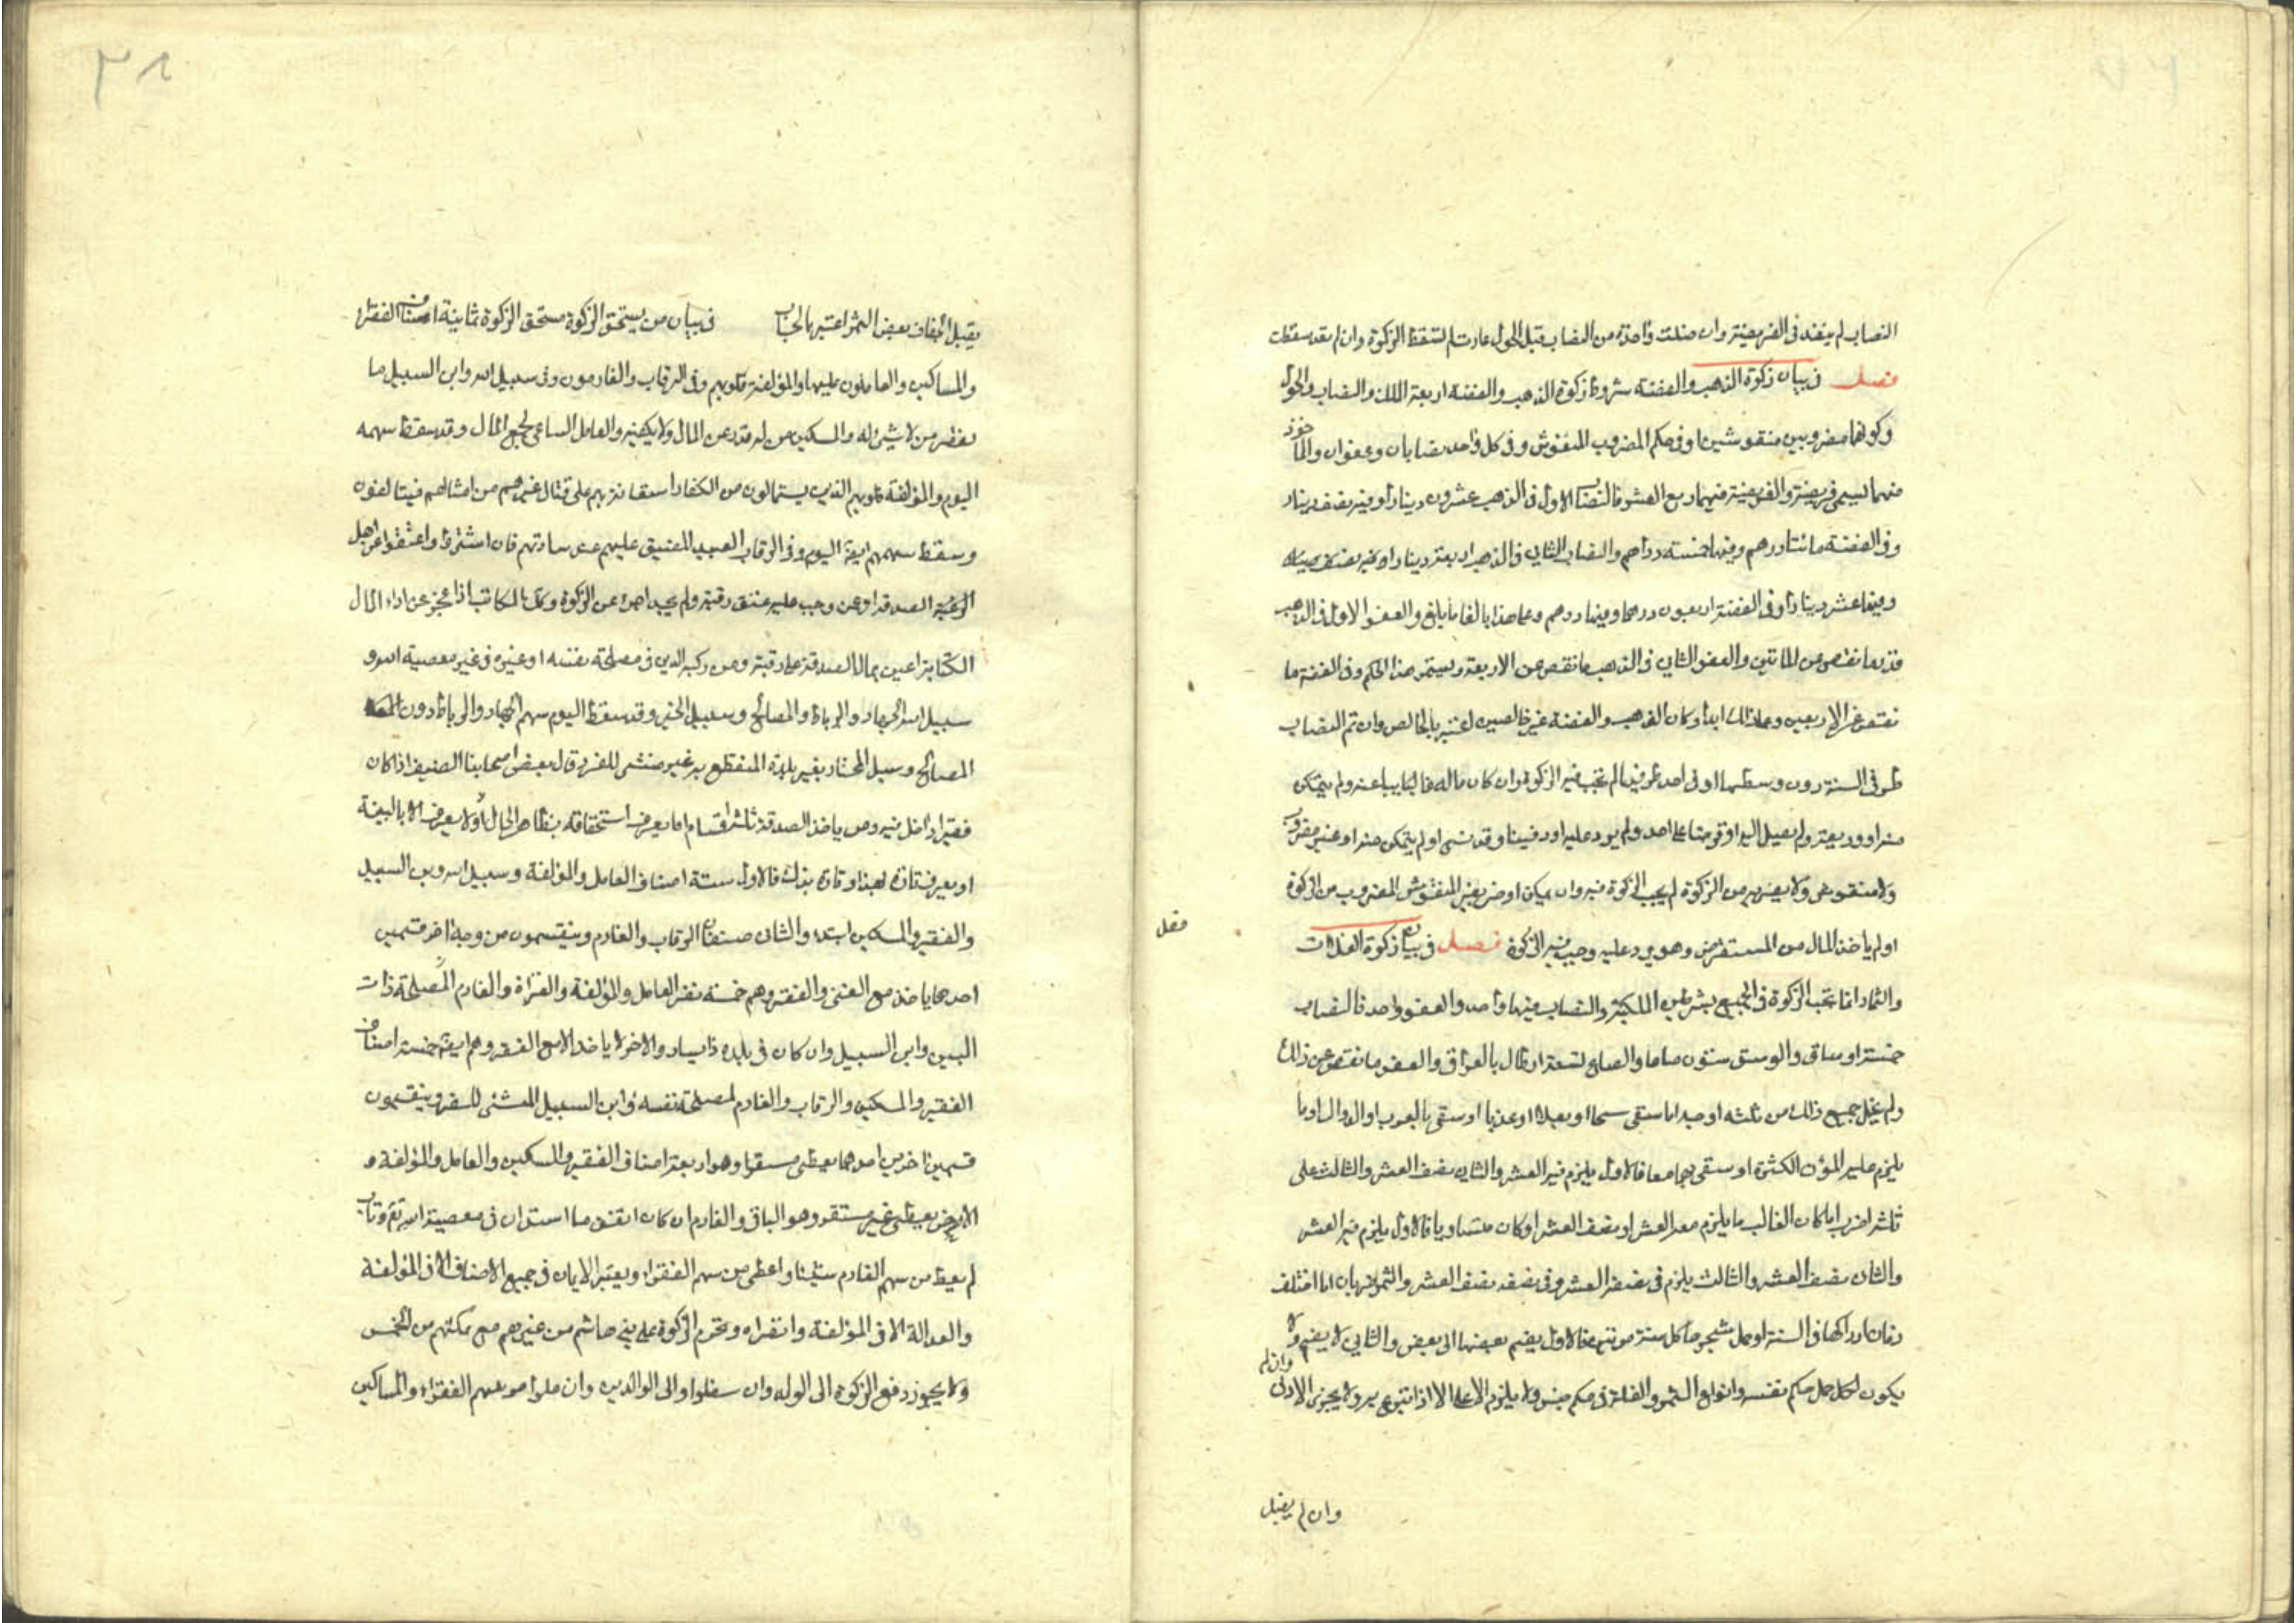 النصاب لم ينفذ فى الفريضة وان ضلت واحدة من النصاب قبل الحول عادت لم تسقط الزكوة وان لم يعد سقطت
فصل فى بيان زكوة الذهب والفضة شروط زكوة الذهب والفضة اربعة الملك والنصاب والحول
وكونهما مضروبين منقوشين او فى حكم المضروب المنقوش وفى كل واحد نصابان وعفوان والماخوذ
منهما يسمى فريضة والفريضة فيهما ربع العشر فالنصاب الاول فى الذهب عشرون دينارا وفيه نصف دينار
وفى الفضة مائتا درهم وفيها خمسة دراهم والنصاب الثانى فى الذهب اربعة دينار
دينارا وفى الفضة اربعون درهما وفيها درهم وعلى هذا بالغا ما بلغ والعفو الاول فى الذهب
ما نقص من المائتين والعفو الثانى فى الذهب ما نقص عن الاربعة ويستمر هذا الحكم وفى الفضة ما
نقص عن الاربعين وعلى ذلك ابدا وكان الذهب والفضة غير خالصين اعتبر بالخالص وان تم النصاب
طرفى السنة دون وسطها او فى احد طرفيها لم تجب فيه الزكوة وان كان ماله غائبا عنه ولم يتمكن
منه او وديعة ولم يصل اليه او قرضا على احد ولم يود عليه او دفينا وقد نسى او لم يتمكن منه او غير مضروب
ولا منقوش ولا من الزكوة لم يجب الزكوة فيه وان المنقوش المضروب من الزكوة
او لم ياخذ المال من المستقرض وهو يرد عليه وجب فيه الزكوة فصل فى بيان زكوة الغلات
والثمار انما تجب الزكوة فى الجميع بشرطين الملكية والنصاب فيها واحد والعفو واحد فالنصاب
خمسة اوساق والوسق ستون صاعا والصاع تسعة ارطال بالعراقى والعفو ما نقص عن ذلك
ولم يخل جميع ذلك من ثلثه اوجه اما سقى سيحا او بعلا او عذيا او سقى بالغرب او الدوالى او ما
يلزم عليه المؤن الكثيرة او سقى بهما معا فالاول يلزم فيه العشر والثانى نصف العشر والثالث على
ثلثة اضرب اما كان الغالب ما يلزم معه العشر او نصف العشر او كان متساويا فالاول يلزم فيه العشر
والثانى نصف العشر والثالث يلزم فى نصفه العشر وفى نصفه نصف العشر والثمر ضربان اما اختلف
زمان ادراكها فى السنة او حمل شجرها كل سنة مرتين فالاول يضم بعضها الى بعض والثانى لا يضم ولا
يكون لكل حمل حكم نفسه وانواع الثمر والغلة فى حكم جنس ولا يلزم الاعلى الا اذا تبرع به ولا يجزى الادنى
وان لم
وان لم يقبل
فصل
٣٨
يقبل بعض الثمر اعتبر بالحساب فى بيان من يستحق الزكوة مستحق الزكوة ثمانية اصناف الفقراء
والمساكين والعاملون عليها والمؤلفة قلوبهم وفى الرقاب والغارمون وفى سبيل الله وابن السبيل
من لا شئ له والمسكين من له قدر من المال ولا يكفيه والعامل الساعى لجمع المال وقد سقط سهمه
اليوم والمؤلفة قلوبهم الذين يستمالون من الكفار استعانة بهم على قتال غيرهم من امثالهم فيتالفون
وسقط سهمهم ايضا اليوم وفى الرقاب العبيد المضيق عليهم عند ساداتهم فان اشتروا واعتقوا من اهل
الصدقة او من وجب عليه عتق رقبة ولم يجد اجزء عن الزكوة وكذا المكاتب اذا عجز عن اداء المال
الكتابة اعين بمال الصدقة على رقبته ومن ركبه الدين فى مصلحة نفسه او غيره فى غير معصية الله و
سبيل الله الجهاد والرباط والمصالح وسبيل الخير وقد سقط اليوم سهم الجهاد والرباط دون
المصالح وسبيل المجتاز بغير بلده المنقطع به غير منشئ للسفر وقال بعض اصحابنا الضيف اذا كان
فقيرا داخل فيه ومن ياخذ الصدقة ثلثة اقسام اما يعرف استحقاقه بظاهر الحال او لا يعرف الا بالبينة
او يعرف تارة بهذا وتارة بذلك فالاول ستة اصناف العامل والمؤلفة وسبيل الله وابن السبيل
والفقير والمسكين ابتداء والثانى صنفان الرقاب والغارم وينقسمون من وجه اخر قسمين
احدهما ياخذ مع الغنى والفقر وهم خمسة نفر العامل والمؤلفة والغزاة والغارم لمصلحة ذات
البين وابن السبيل وان كان فى بلده ذا يسار والاخر لا ياخذ الا مع الفقر وهم ايضا خمسة اصناف
الفقير والمسكين والرقاب والغارم لمصلحة نفسه وابن السبيل المنشئ للسفر وينقسمون
قسمين اخرين احدهما يعطى مستقرا وهو اربعة اصناف الفقير والمسكين والعامل والمؤلفة و
الاخر يعطى غير مستقر وهو الباقى والغارم ان كان انفق ما استدان فى معصية الله ثم وتاب
لم يعط من سهم الغارم شيئا واعطى من سهم الفقراء ويعتبر الايمان فى جميع الاصناف الا فى المؤلفة
والعدالة الا فى المؤلفة والغزاة وتحرم الزكوة على بنى هاشم من غيرهم مع تمكنهم من الخمس
ولا يجوز دفع الزكوة الى الولد وان سفلوا والى الوالدين وان علوا من سهم الفقراء والمساكين